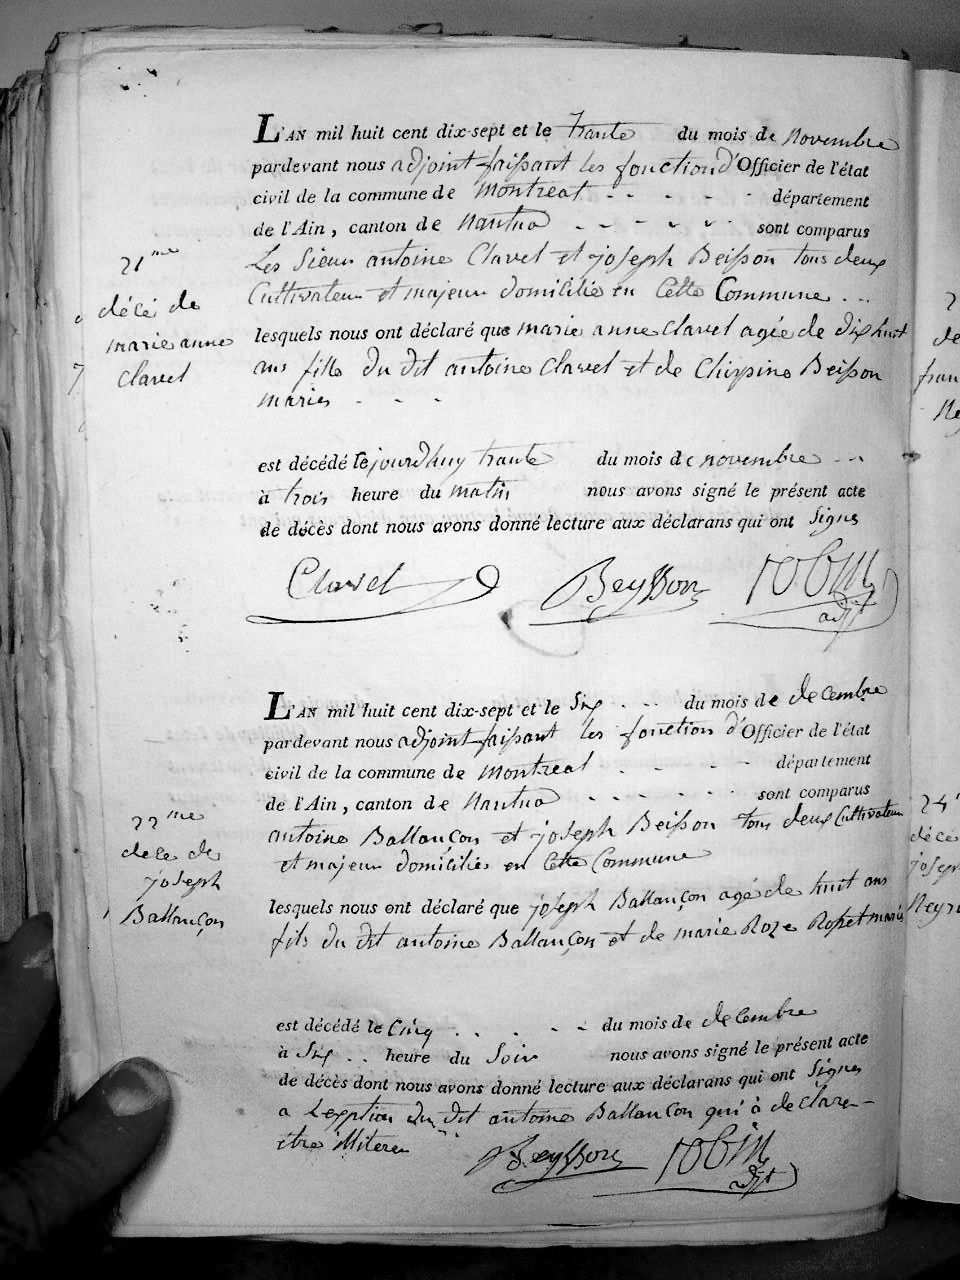 L'AN mil huit cent dix-sept et le trante du mois de novembre
pardevant nous adjoint faissant les fonction d'Officier de l'état
civil de la commune de Montreal - - - - département
de l'Ain, canton de Nantua - - - - sont comparus
Les Sieur antoine Clavel et joseph Beisson tous deux
Cultivateur et majeur domicilié en Cette Commune . . .
lesquels nous ont déclaré que marie anne Clavel agée de dix huit
ans fille du dit antoine Clavel et de Beisson
mariés - - -
21me
décé de
marie anne
Clavel
est décédé le jourd'huy trante du mois de novembre - -
à trois heure du matin nous avons signé le présent acte
de décès dont nous avons donné lecture aux déclarans qui ont Signés
Clavel Beysson robin
adjt
L'AN mil huit cent dix-sept et le Six . . . du mois de decembre
pardevant nous adjoint faissant les fonction d'Officier de l'état
civil de la commune de Montreal - - - - département
de l'Ain, canton de Nantua - - - - - - sont comparus
antoine Ballançon et joseph Beisson tous deux Cultivateur
et majeur domicilié en Cette Commune
lesquels nous ont déclaré que joseph Ballançon agé de huit ans
fils du dit antoine Ballançon et de marie Roze mariés
22me
dece de
joseph
Ballançon
est décédé le Cinq . . . - - du mois de decembre
à Six . . heure du Soir nous avons signé le présent acte
de décès dont nous avons donné lecture aux déclarans qui ont Signés
a Lexption du dit antoine Ballançon qui à declare
être illiteré
Beysson robin
adjt